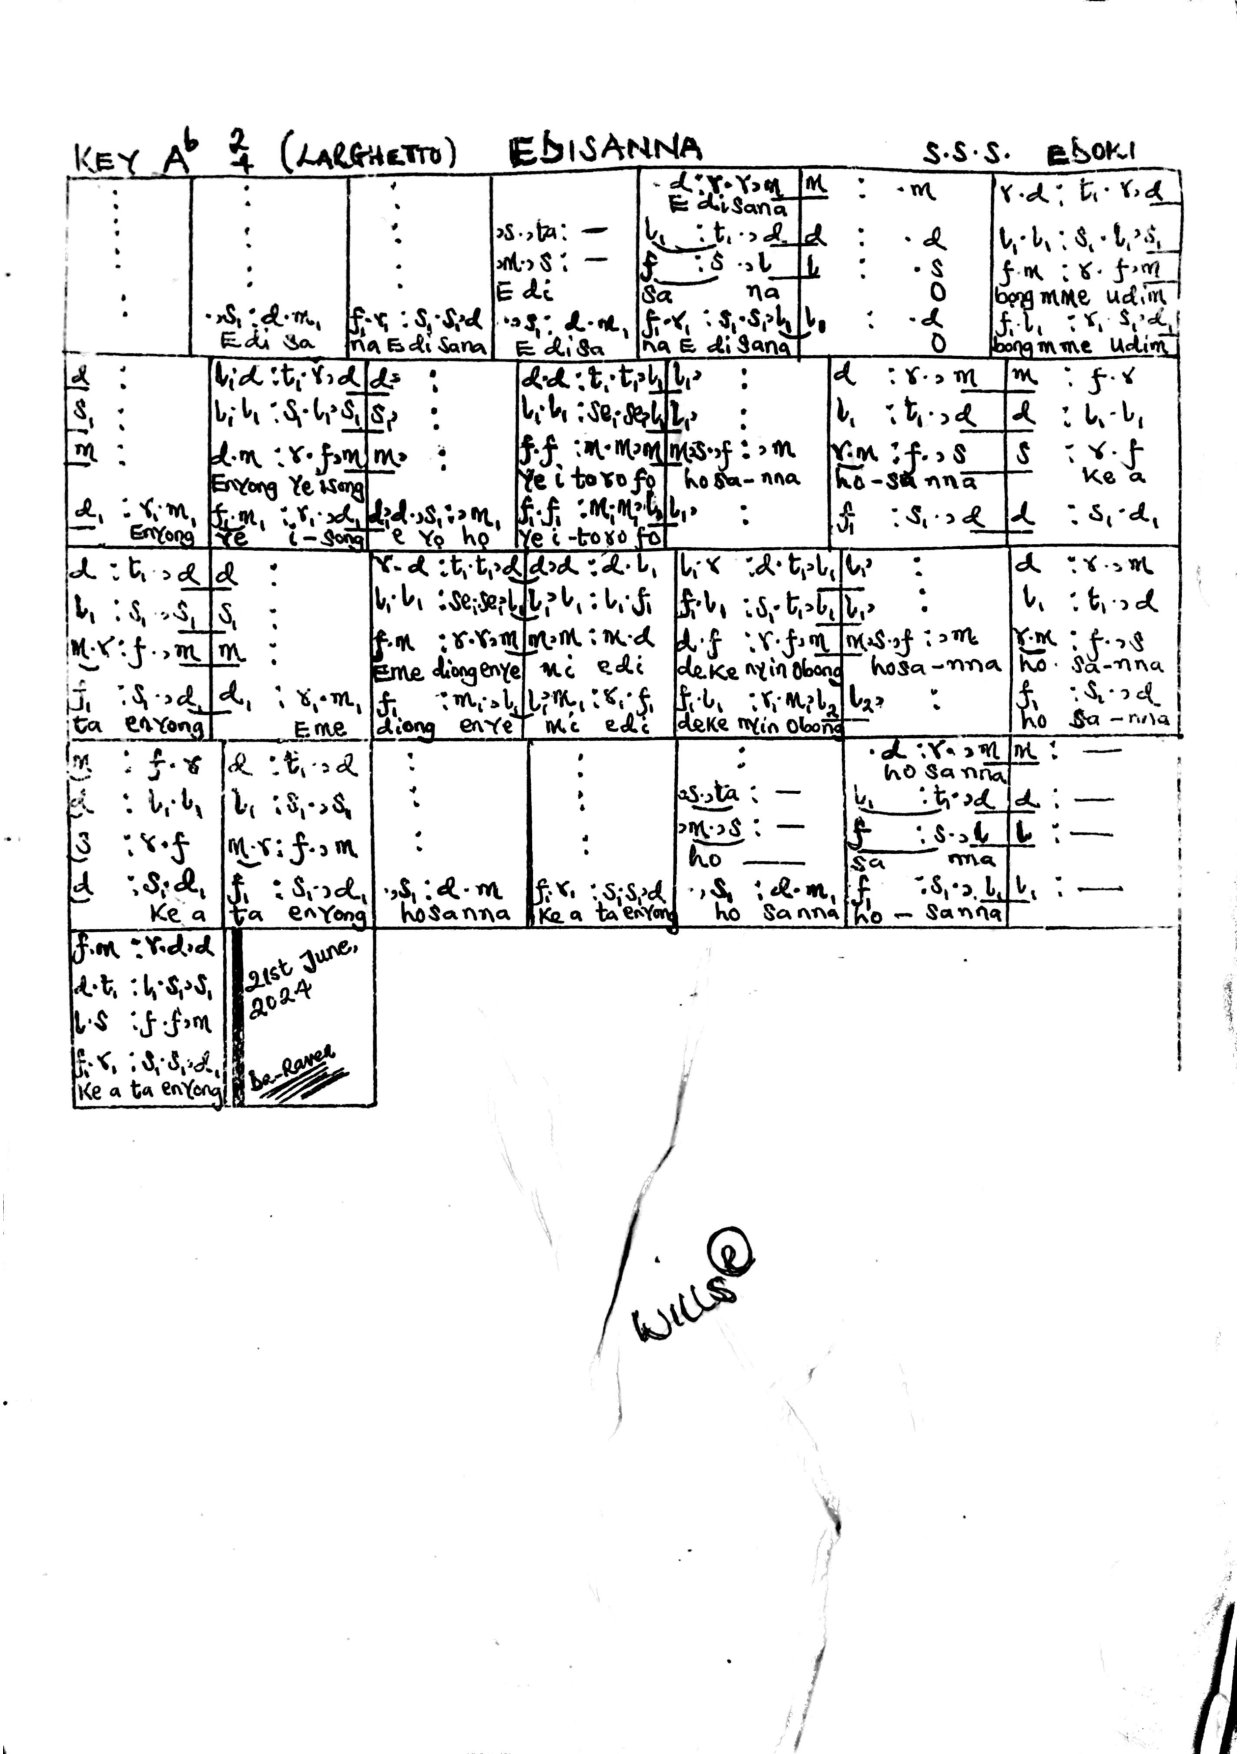 KEY Aᵇ 2/4 (LARGHETTO) EDISANNA S.S.S. EDOKI
: : : : - d : r . r , m m : . m r . d : t₁ . r , d
E di sana
: : : , s . , ta : — l₁ : t₁ . , d d : . d l₁ . l₁ : s₁ . l₁ , s₁
: : : , m . , s : — f : s . , l l : . s f . m : r . f , m
E di sa na O bong mme udim
: . , s₁ : d . m₁ f₁ . r₁ : s₁ . s₁ , d . , s₁ : d . m₁ f₁ . r₁ : s₁ . s₁ , l₁ l₁ : . d f₁ . l₁ : r₁ . s₁ , d₁
E di sa na E di sana E di sa na E di sana O bong mme udim
d : l₁ . d : t₁ . r , d d , : d . d : t₁ . t₁ , l₁ l₁ , : d : r . , m m : f . r
s₁ : l₁ . l₁ : s₁ . l₁ , s₁ s₁ , : l₁ . l₁ : se₁ . se₁ , l₁ l₁ , : l₁ : t₁ . , d d : l₁ . l₁
m : d . m : r . f , m m , : f . f : m . m , m m , s . , f : , m r . m : f . , s s : r . f
Enyong ye isong ye i to ro fo ho sa - nna ho - sa nna ke a
d₁ : r₁ . m₁ f₁ . m₁ : r₁ . , d₁ d , d . , s₁ : , m₁ f₁ . f₁ : m₁ . m₁ , l₁ l₁ , : f₁ : s₁ . , d d : s₁ . d₁
Enyong ye i - song e yo ho ye i - to ro fo
d : t₁ . , d d : r . d : t₁ . t₁ , d d , d : d . l₁ l₁ . r : d . t₁ , l₁ l₁ , : d : r . , m
l₁ : s₁ . , s₁ s₁ : l₁ . l₁ : se₁ . se₁ , l₁ l₁ , l₁ : l₁ . f₁ f₁ . l₁ : s₁ . t₁ , l₁ l₁ , : l₁ : t₁ . , d
m . r : f . , m m : f . m : r . r , m m , m : m . d d . f : r . f , m m , s . , f : , m r . m : f . , s
Eme diong enye mi edi de ke nyin Obong ho sa - nna ho - sa - nna
f₁ : s₁ . , d₁ d₁ : r₁ . m₁ f₁ : m₁ . , l₁ l₁ , m₁ : r₁ . f₁ f₁ . l₁ : r₁ . m₁ , l₂ l₂ , : f₁ : s₁ . , d
ta enyong Eme diong enye mi edi de ke nyin Obong ho sa - nna
m : f . r d : t₁ . , d : : : . d : r . , m m : —
ho sanna
d : l₁ . l₁ l₁ : s₁ . , s₁ : : , s . , ta : — l₁ : t₁ . , d d : —
s : r . f m . r : f . , m : : , m . , s : — f : s . , l l : —
ho — sa nna
d : s₁ . d₁ f₁ : s₁ . , d₁ . , s₁ : d . m f₁ . r₁ : s₁ . s₁ , d . , s₁ : d . m₁ f₁ : s₁ . , l₁ l₁ : —
ke a ta enyong ho sanna ke a ta enyong ho sanna ho - sanna
f . m : r . d , d
d . t₁ : l₁ . s₁ , s₁
l . s : f . f , m
f₁ . r₁ : s₁ . s₁ , d₁
ke a ta enyong
21st June,
2024
De-Raven
WILLS ®